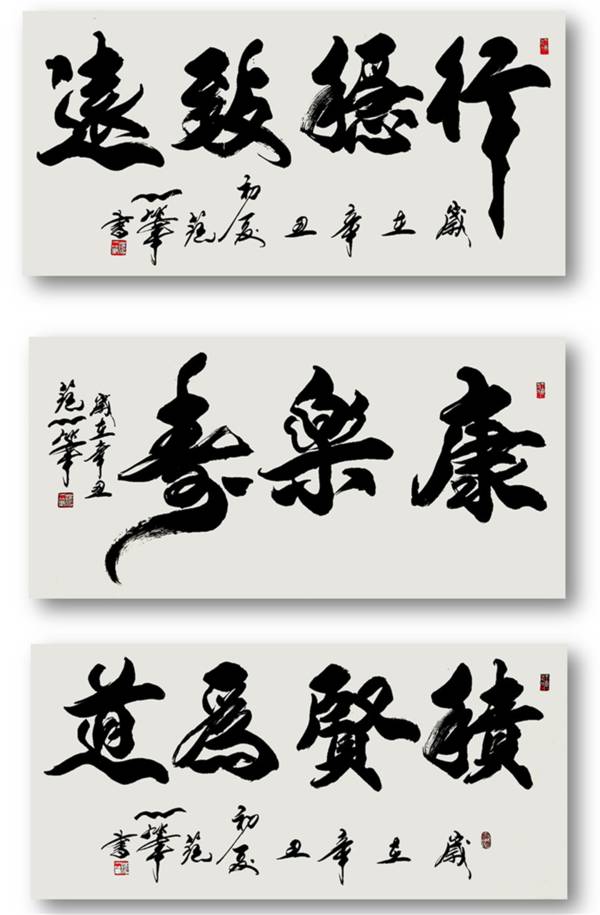 行穩致遠
歲在辛丑初夏范一 書
康樂壽
歲在辛丑
范一
積賢爲道
歲在辛丑初夏范一 書